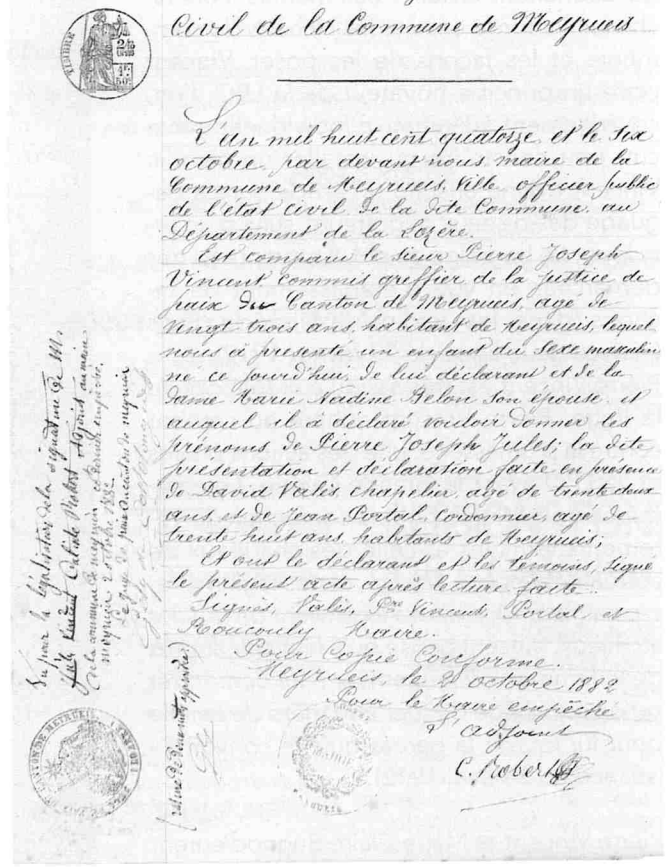 Civil de la Commune de Meyrueis
L'an mil huit cent quatorze et le six
octobre par devant nous maire de la
Commune de Meyrueis, Ville officier public
de l'état civil de la dite Commune au
Département de la Lozère.
Est comparu le sieur Pierre Joseph
Vincent, commis greffier de la justice de
paix du Canton de Meyrueis, agé de
vingt trois ans, habitant de Meyrueis, lequel
nous à présenté un enfant du sexe masculin
né ce jourd'hui, de lui déclarant et de la
dame Marie Nadine Belon son épouse et
auquel il à déclaré vouloir donner les
prénoms de Pierre Joseph Jules; la dite
présentation et déclaration faite en présence
de David Valès, chapelier, agé de trente deux
ans, et de Jean Portal, Cordonnier, agé de
trente huit ans, habitants de Meyrueis;
Et ont le déclarant et les témoins, signé
le présent acte après lecture faite.
Signés, Valès, Pre Vincent, Portal et
Roucouly Maire.
Pour Copie Conforme.
Meyrueis le 2 octobre 1882
Pour le Maire empêché
L'adjoint
C. Robert
Vu pour la légalisation de la signature de M.
Jules Vincent Calixte Robert Adjoint au maire
de la commune de meyrueis
meyrueis 2 octobre 1882
Le juge de paix du canton de meyrueis
TIMBRE
MAIRIE